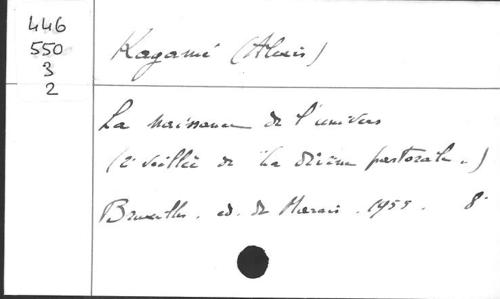 446
550
3
2
Kagamé (Alexis)
La Naissance de l'univers
(2e veillée de "La divine pastorale".)
Bruxelles. ed. du Marais. 1955. 8°